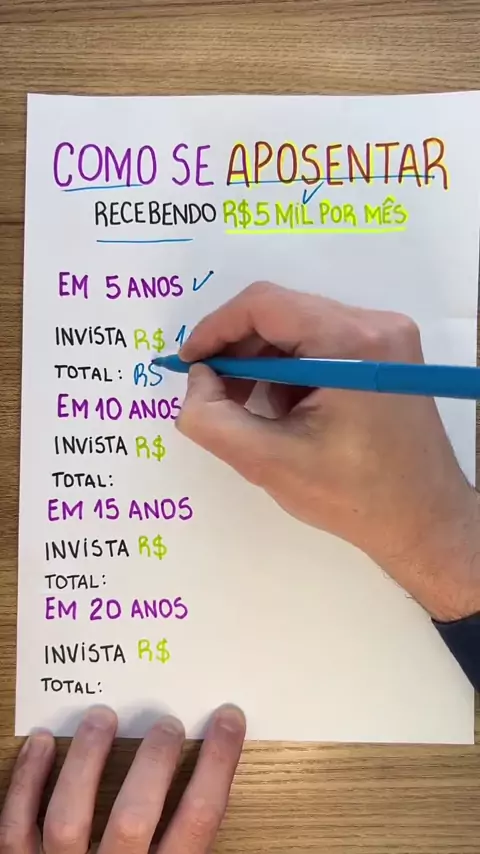 COMO SE APOSENTAR
RECEBENDO R$5 MIL POR MÊS
EM 5 ANOS
INVISTA R$ 1
TOTAL: RS
EM 10 ANOS
INVISTA R$
TOTAL:
EM 15 ANOS
INVISTA R$
TOTAL:
EM 20 ANOS
INVISTA R$
TOTAL: